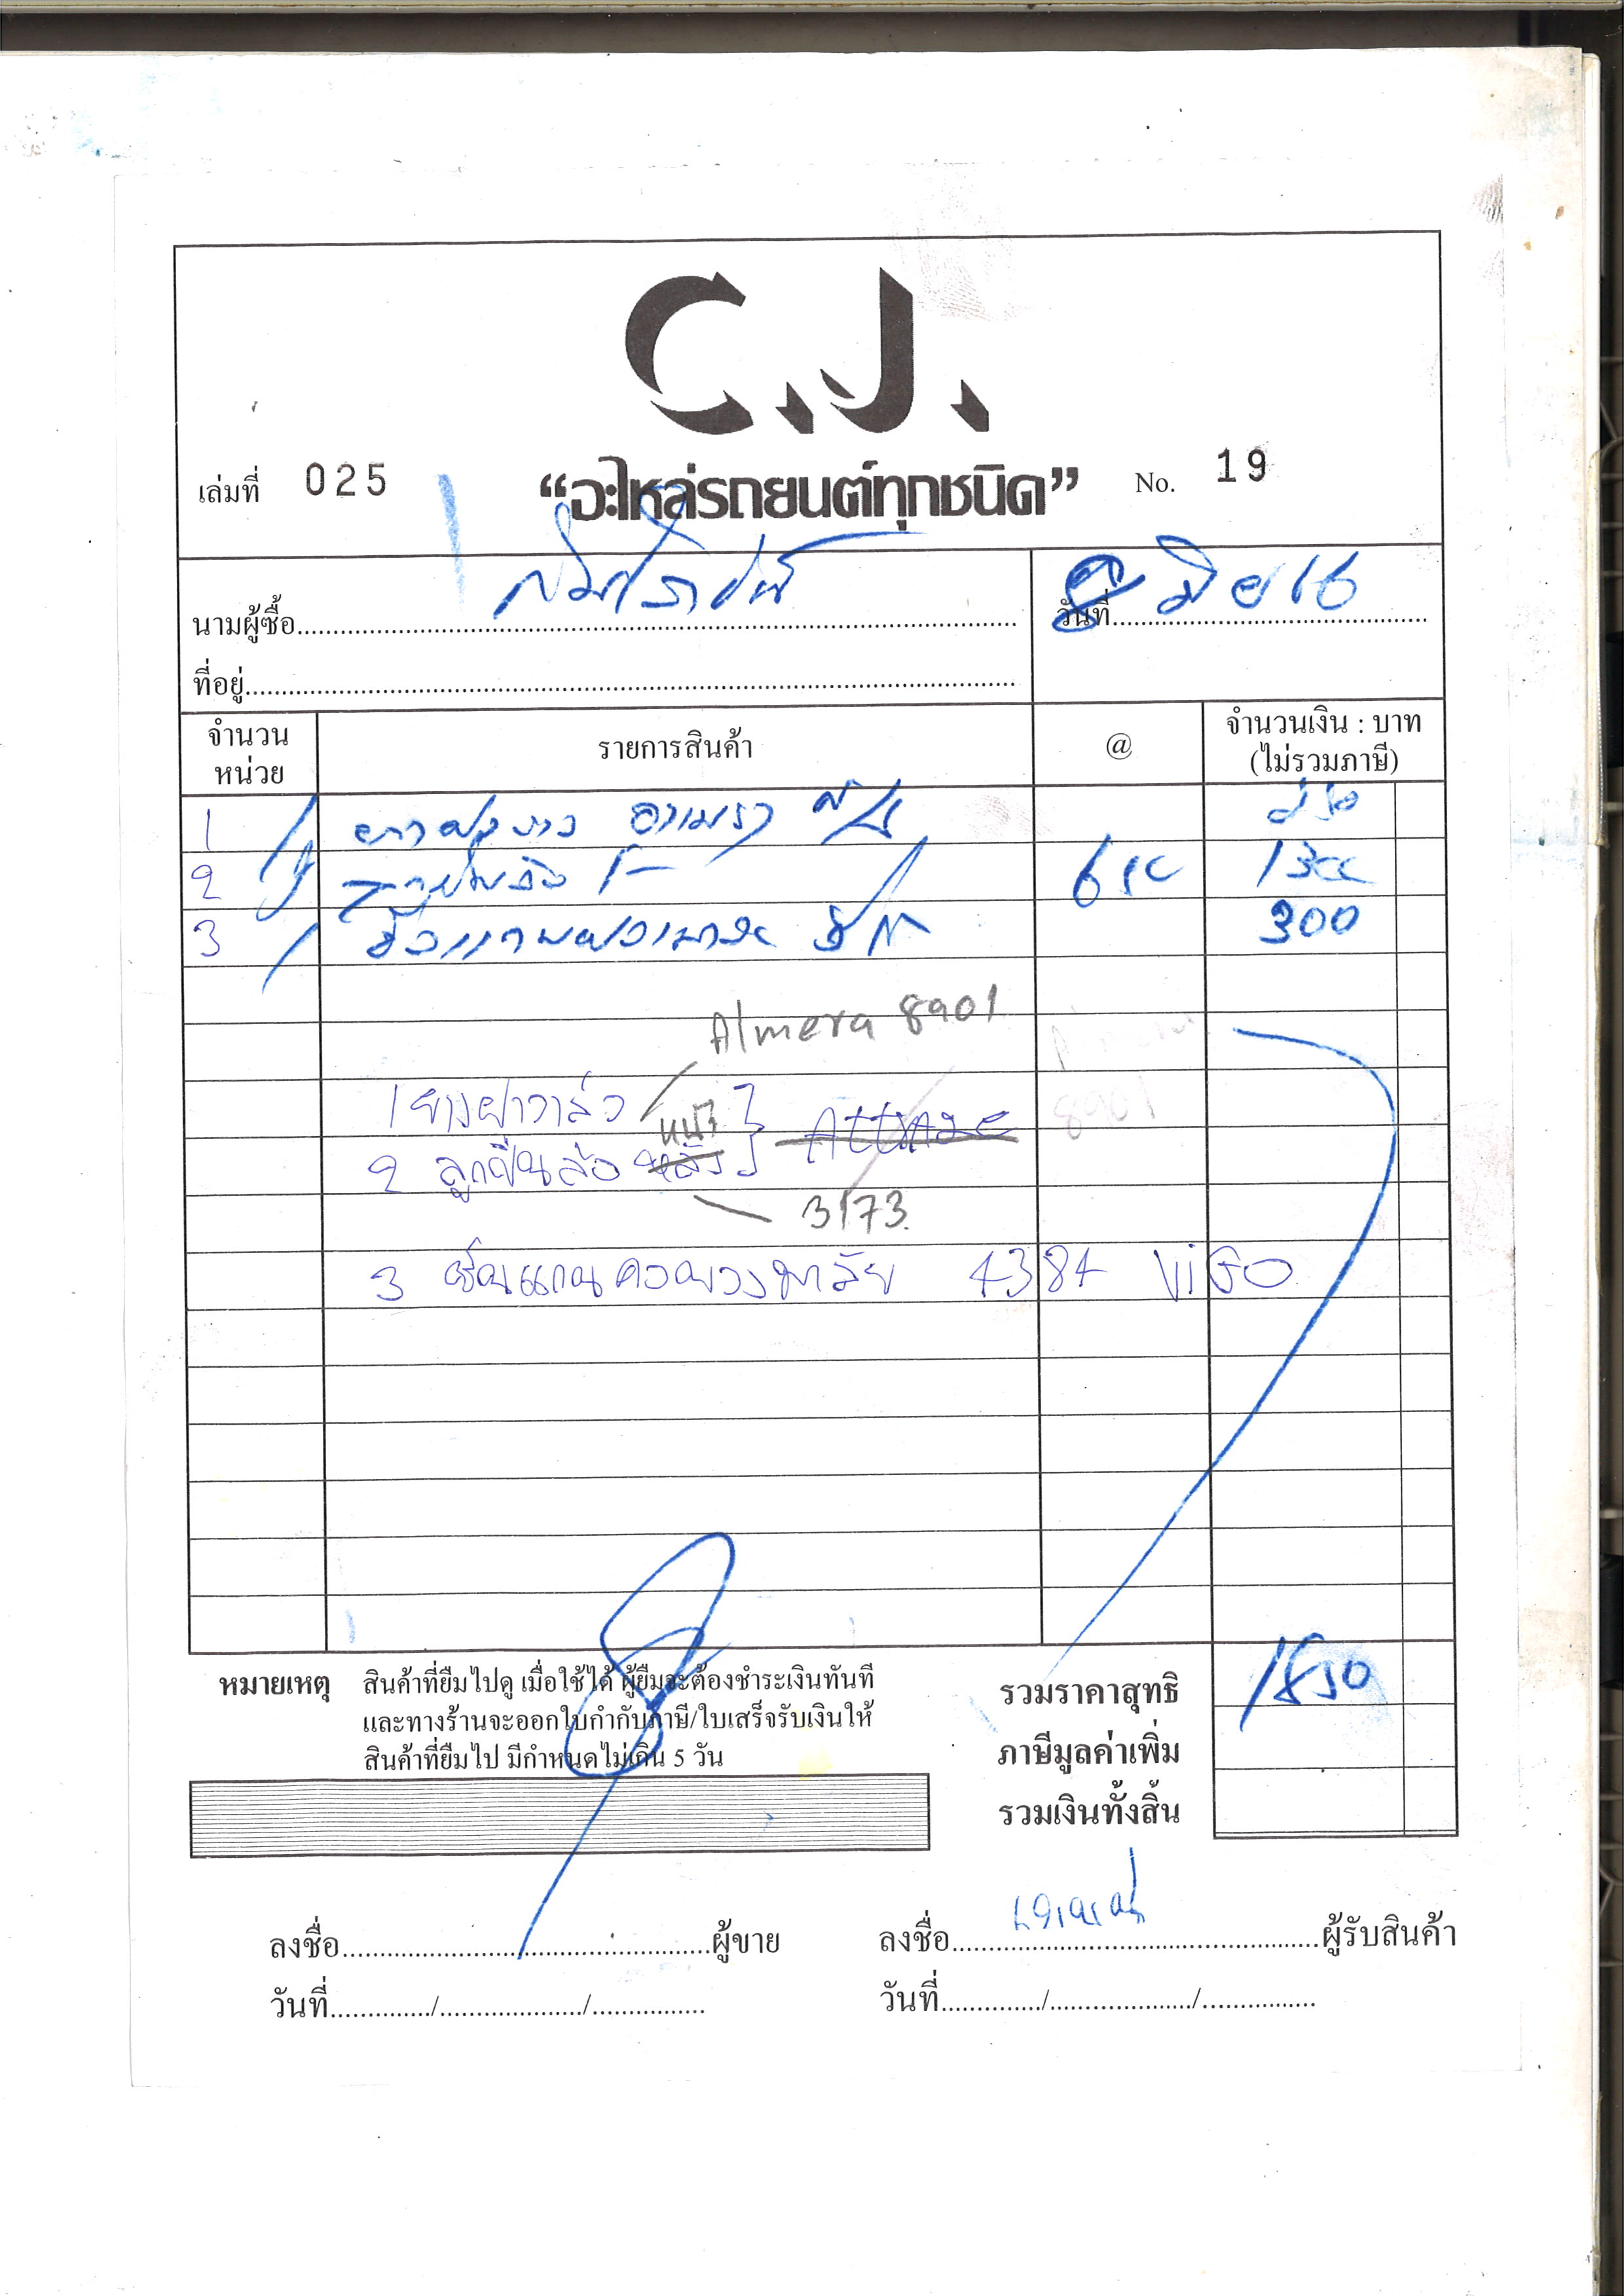 C.J.
เล่มที่ 025 “อะไหล่รถยนต์ทุกชนิด” No. 19
นามผู้ซื้อ วันที่ มิย 16
ที่อยู่
จำนวน หน่วย รายการสินค้า @ จำนวนเงิน : บาท (ไม่รวมภาษี)
1 1
2 2 650 1300
3 1 300
Almera 8901
1 ยางฝาวาล์ว
หน้า
2 ลูกปืนล้อ หลัง Attrage
3173
3 ยอยแกนคอพวงมาลัย 4384 ViGO
หมายเหตุ สินค้าที่ยืมไปดู เมื่อใช้ได้ ผู้ยืมจะต้องชำระเงินทันที
และทางร้านจะออกใบกำกับภาษี/ใบเสร็จรับเงินให้
สินค้าที่ยืมไป มีกำหนดไม่เกิน 5 วัน
รวมราคาสุทธิ 1850
ภาษีมูลค่าเพิ่ม
รวมเงินทั้งสิ้น
ลงชื่อ ผู้ขาย ลงชื่อ ผู้รับสินค้า
วันที่ / / วันที่ / /